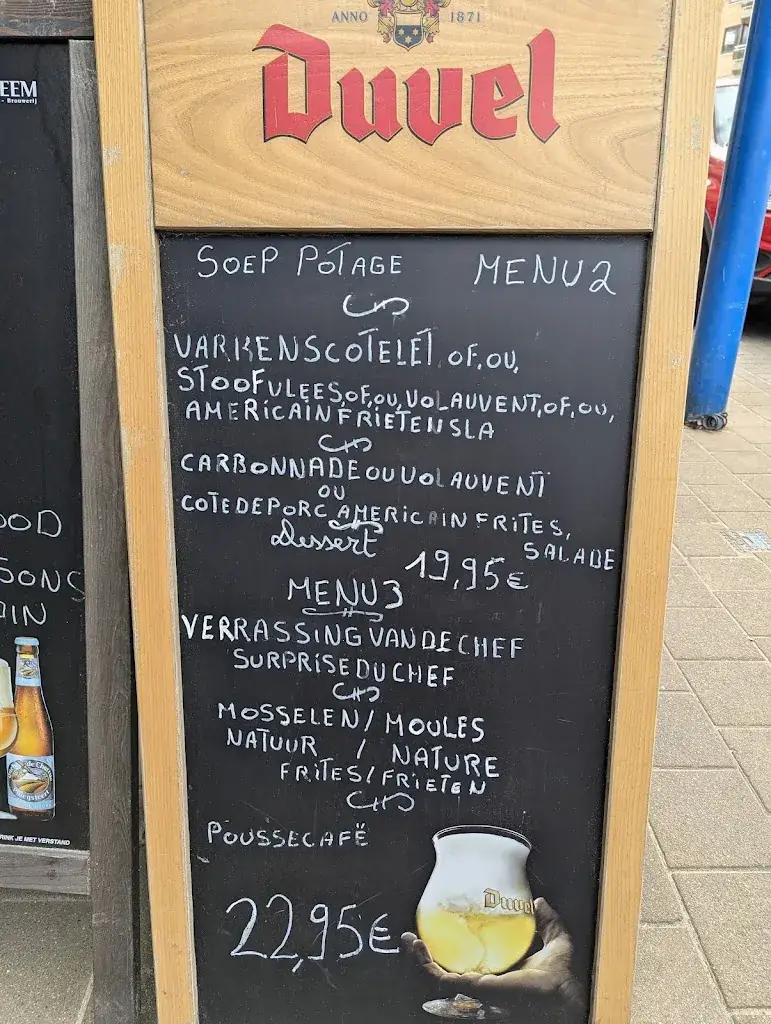 ANNO 1871
Duvel
EEM
- Brouwerij
SOEP POTAGE MENU2
VARKENSCOTELET, OF, OU,
STOOFVLEES, OF, OU, VOLAUVENT, OF, OU,
AMERICAIN FRIETEN SLA
CARBONNADE OU VOLAUVENT
OU
COTE DE PORC AMERICAIN FRITES,
SALADE
Dessert 19,95€
MENU3
VERRASSING VAN DE CHEF
SURPRISE DU CHEF
MOSSELEN / MOULES
NATUUR / NATURE
FRITES / FRIETEN
POUSSECAFË
22,95€
Duvel
OOD
SONS
IN
RINK JE MET VERSTAND